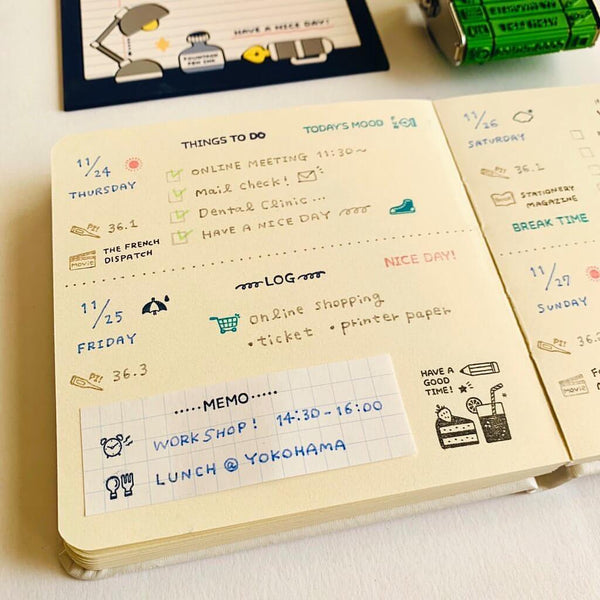 HAVE A NICE DAY!
FOUNTAIN
PEN INK
THINGS TO DO
TODAY'S MOOD
11/24
THURSDAY
ONLINE MEETING 11:30~
Mail check!
Dental Clinic...
HAVE A NICE DAY
PI! 36.1
MOVIE
THE FRENCH
DISPATCH
NICE DAY!
LOG
11/25
FRIDAY
online shopping
•ticket •printer paper
PI! 36.3
•••••MEMO•••••
WORKSHOP! 14:30-16:00
LUNCH @ YOKOHAMA
HAVE A
GOOD
TIME!
11/26
SATURDAY
PI! 36.1
STATIONERY
MAGAZINE
BREAK TIME
11/27
SUNDAY
PI! 36.
MOVIE